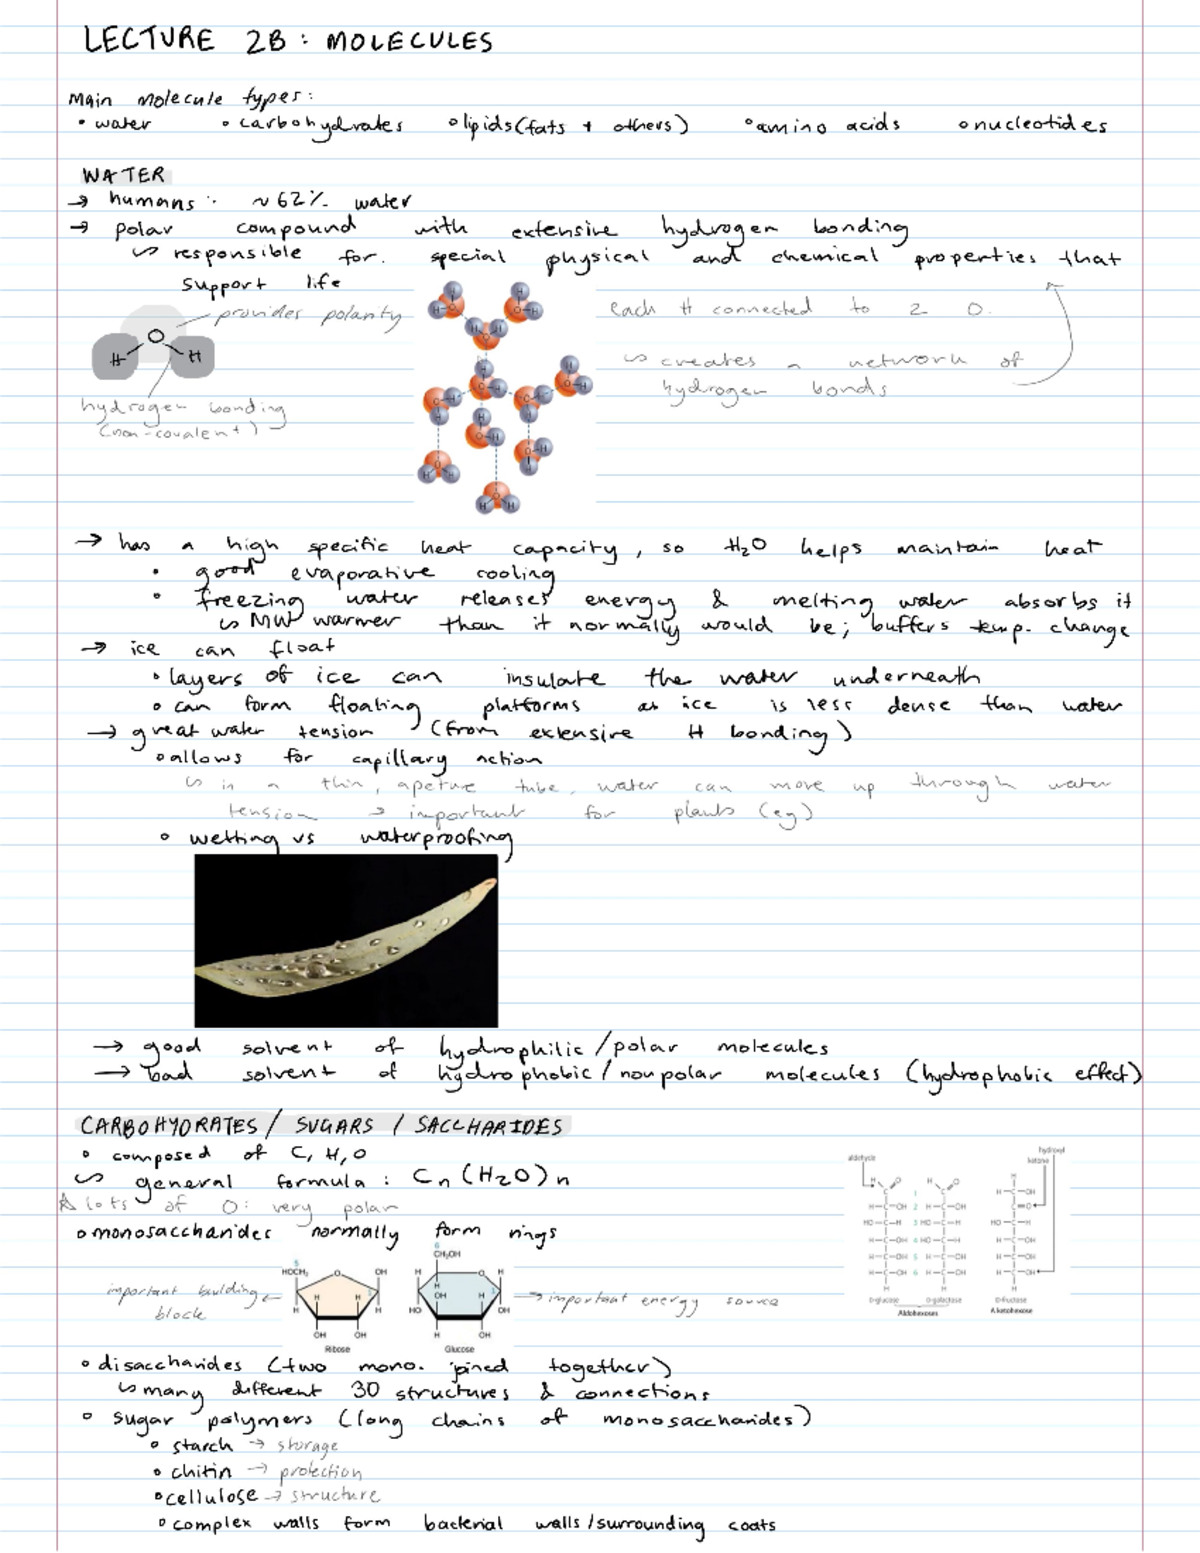 LECTURE 2B: MOLECULES
Main molecule types:
• water • carbohydrates • lipids (fats + others) • amino acids • nucleotides
WATER
→ humans: ~62% water
→ polar compound with extensive hydrogen bonding
↳ responsible for special physical and chemical properties that
support life
provides polarity
each H connected to 2 O.
O
H H
↳ creates a network of
hydrogen bonds
hydrogen bonding
(non-covalent)
→ has a high specific heat capacity, so H2O helps maintain heat
• good evaporative cooling
• freezing water releases energy & melting water absorbs it
↳ MW warmer than it normally would be; buffers temp. change
→ ice can float
• layers of ice can insulate the water underneath
• can form floating platforms as ice is less dense than water
→ great water tension (from extensive H bonding)
• allows for capillary action
↳ in a thin, apeture tube, water can move up through water
tension → important for plants (eg)
• wetting vs waterproofing
→ good solvent of hydrophilic/polar molecules
→ bad solvent of hydrophobic/nonpolar molecules (hydrophobic effect)
CARBOHYDRATES / SUGARS / SACCHARIDES
• composed of C, H, O
↳ general formula: Cn(H2O)n
lots of O: very polar
• monosaccharides normally form rings
aldehyde
hydroxyl
ketone
D-glucose D-galactose D-fructose
Aldohexoses A ketohexose
important building
block
HOCH2 O OH
H H H H
OH OH
Ribose
6
CH2OH
H O H
H
OH H
HO OH
H OH
Glucose
→ important energy source
• disaccharides (two mono. joined together)
↳ many different 3D structures & connections
• sugar polymers (long chains of monosaccharides)
• starch → storage
• chitin → protection
• cellulose → structure
• complex walls form bacterial walls/surrounding coats